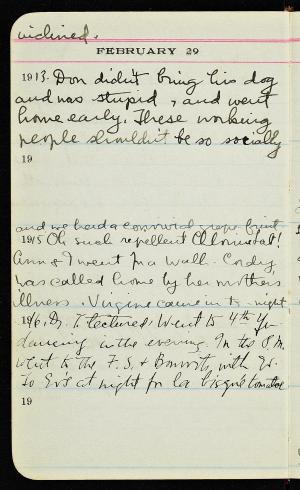 inclined.
FEBRUARY 29
1913. Don didn't bring his dog
and was stupid, and went
home early. These working
people shouldn't be so socially
19
and we had a grape fruit
1915 Oh such repellent
Ann & I went in a walk. Cordy
was called home by her mothers
illness. Virginia came in to-night
1916. Dr. T. lectured. Went to 4th Yr
dancing in the evening. In the P.M.
went to the F. S. & with Ev.
To Ev's at night for la bisque tomatoe
19